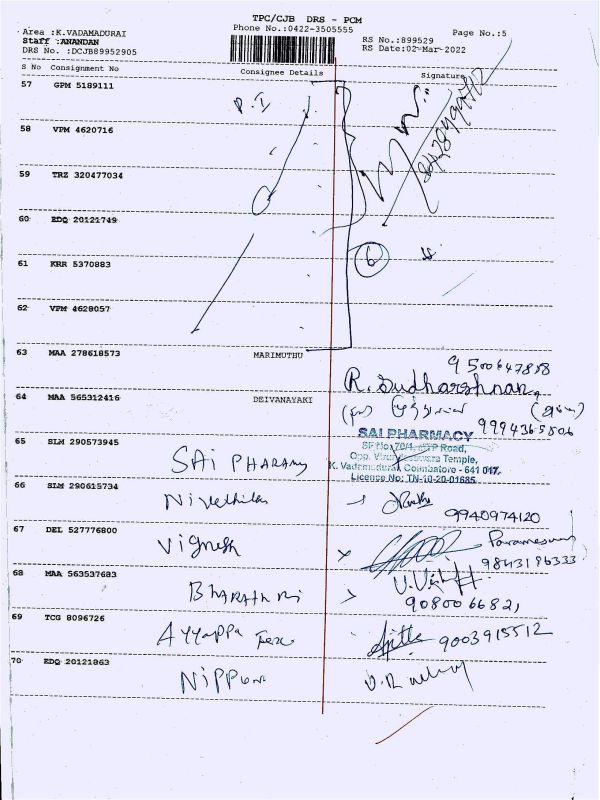 TPC/CJB DRS - PCM
Phone No.:0422-3505555
Area :K.VADAMADURAI
Staff :ANANDAN
DRS No. :DCJB89952905
RS No.:899529
RS Date:02-Mar-2022
Page No.:5
S No Consignment No Consignee Details Signature
57 GPM 5189111
58 VPM 4620716
59 TRZ 320477034
60 EDQ 20121749
6
61 KRR 5370883
62 VPM 4628057
63 MAA 278618573 MARIMUTHU
9500647858
R. Sudharshnan
64 MAA 565312416 DEIVANAYAKI
9994365806
65 SLM 290573945
SAI PHARAMY
SAI PHARMACY
SF No: 70/1, MTP Road,
Opp. Virundeeswara Temple,
K. Vadamadurai, Coimbatore - 641 017.
License No: TN-10-20-01685
66 SLM 290615734
Nivethika
9940974120
67 DEL 527776800
Vignesh
Parameswari
9843186333
68 MAA 563537683
BHARATH
9080066821
69 TCG 8096726
Ayyappa Tex
9003915512
70 EDQ 20121863
NIPPON